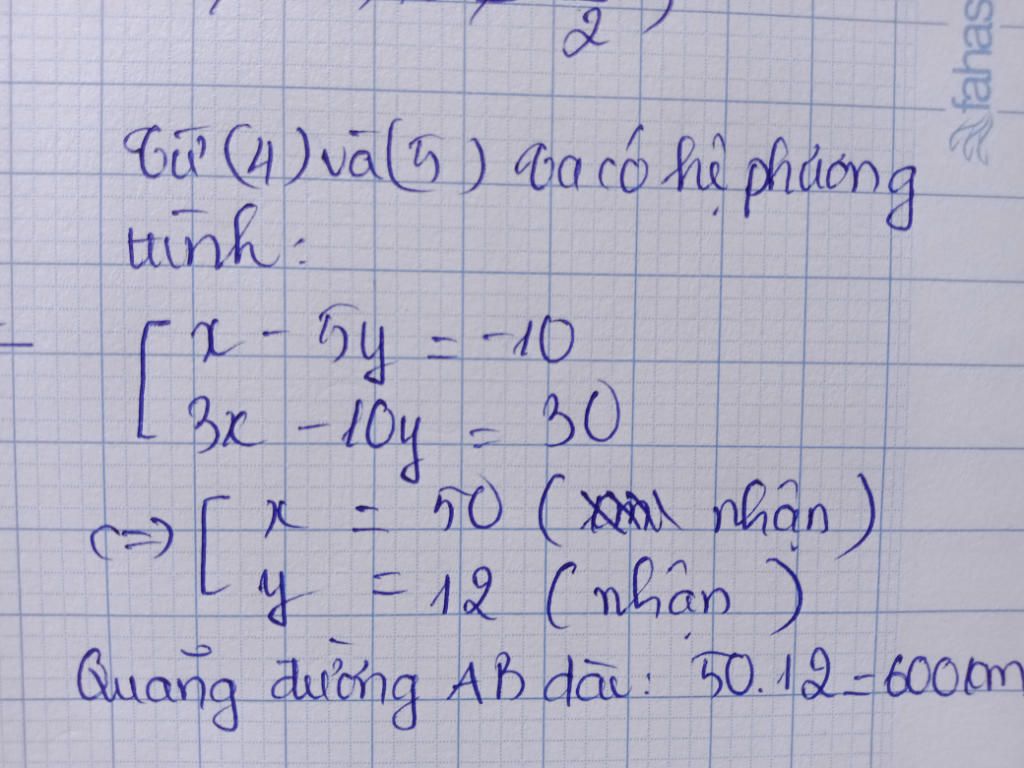 2
fahas
Từ (4) và (5) ta có hệ phương
trình:
x - 5y = -10
3x - 10y = 30
<=> x = 50 (nhận)
y = 12 (nhận)
Quãng đường AB dài: 50.12 = 600km